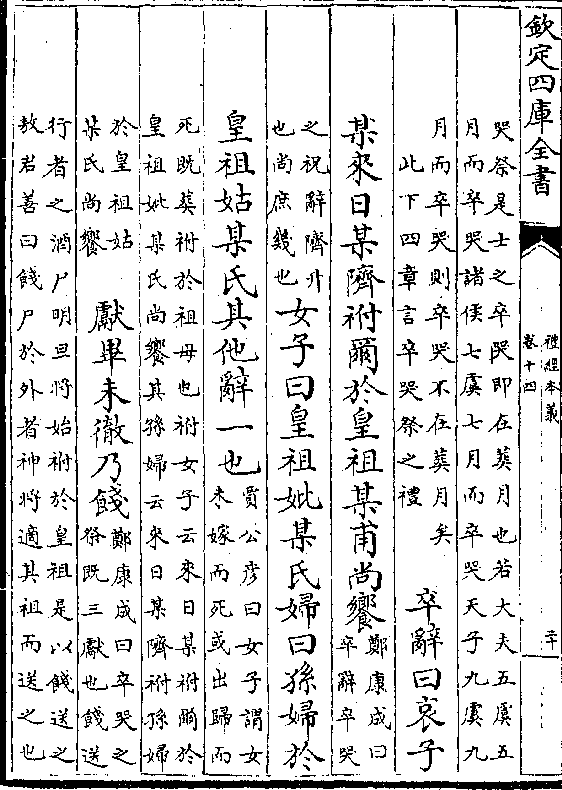 欽定四庫全書
禮經本義
卷十四
二十
哭祭是士之卒哭即在葬月也若大夫五虞五
月而卒哭諸侯七虞七月而卒哭天子九虞九
月而卒哭則卒哭不在葬月矣
此下四章言卒哭祭之禮
卒辭曰哀子
某來日某隮祔爾於皇祖某甫尚饗
鄭康成曰
卒辭卒哭
之祝辭隮升
也尚庶幾也
女子曰皇祖妣某氏婦曰孫婦於
皇祖姑某氏其他辭一也
賈公彥曰女子謂女
未嫁而死或出歸而
死既葬祔於祖母也祔女子云來日某祔爾於
皇祖妣某氏尚饗其孫婦云來日某隮祔孫婦
於皇祖姑
某氏尚饗
獻畢未徹乃餞
鄭康成曰卒哭之
祭既三獻也餞送
行者之酒尸明旦將始祔於皇祖是以餞送之
敖君善曰餞尸於外者神將適其祖而送之也